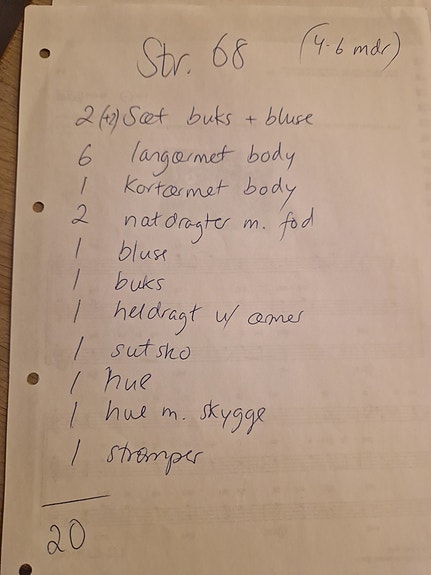 Str. 68 (4-6 mdr)
2 (+2) Sæt buks + bluse
6 langærmet body
1 kortærmet body
2 natdragter m. fod
1 bluse
1 buks
1 heldragt u/ ærmer
1 sutsko
1 hue
1 hue m. skygge
1 strømper
20